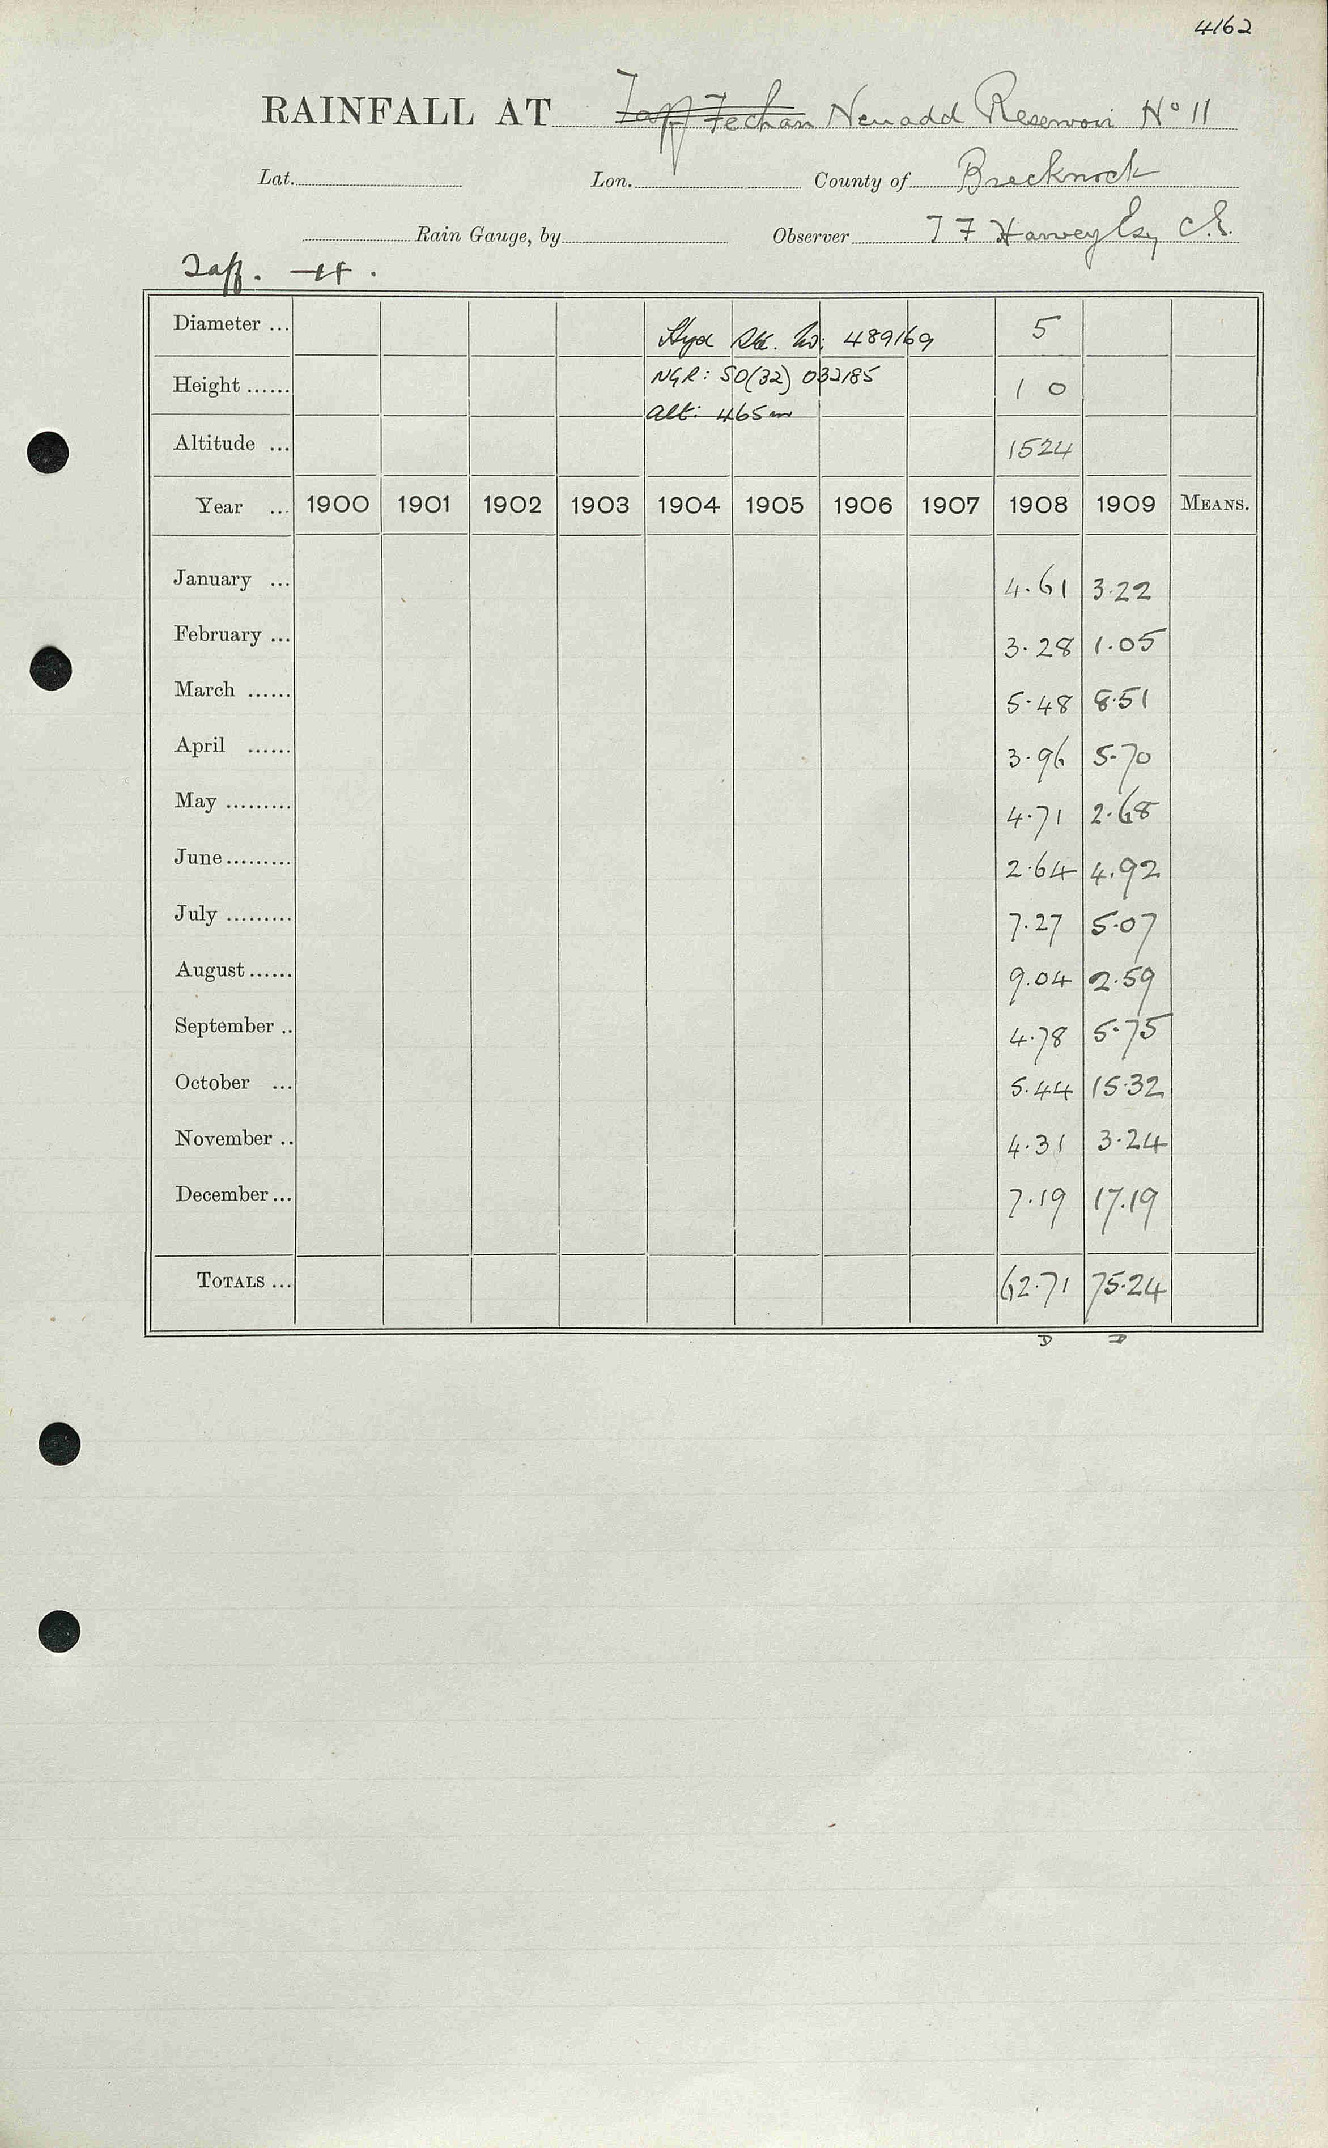 4162
RAINFALL AT Taff Fechan Neuadd Reservoir No 11
Lat. Lon. County of Brecknock
Rain Gauge, by Observer T F Harvey Esq C.E.
Taff. H.
Diameter ... Hyd Stn. No. 489169 5
NGR: SO(32) 032185
Height ...... 1 0
Alt: 465m
Altitude ... 1524
Year ... 1900 1901 1902 1903 1904 1905 1906 1907 1908 1909 MEANS.
January ... 4.61 3.22
February ... 3.28 1.05
March ...... 5.48 8.51
April ...... 3.96 5.70
May ......... 4.71 2.68
June ......... 2.64 4.92
July ......... 7.27 5.07
August ...... 9.04 2.59
September .. 4.78 5.75
October ... 5.44 15.32
November .. 4.31 3.24
December ... 7.19 17.19
TOTALS ... 62.71 75.24
D D